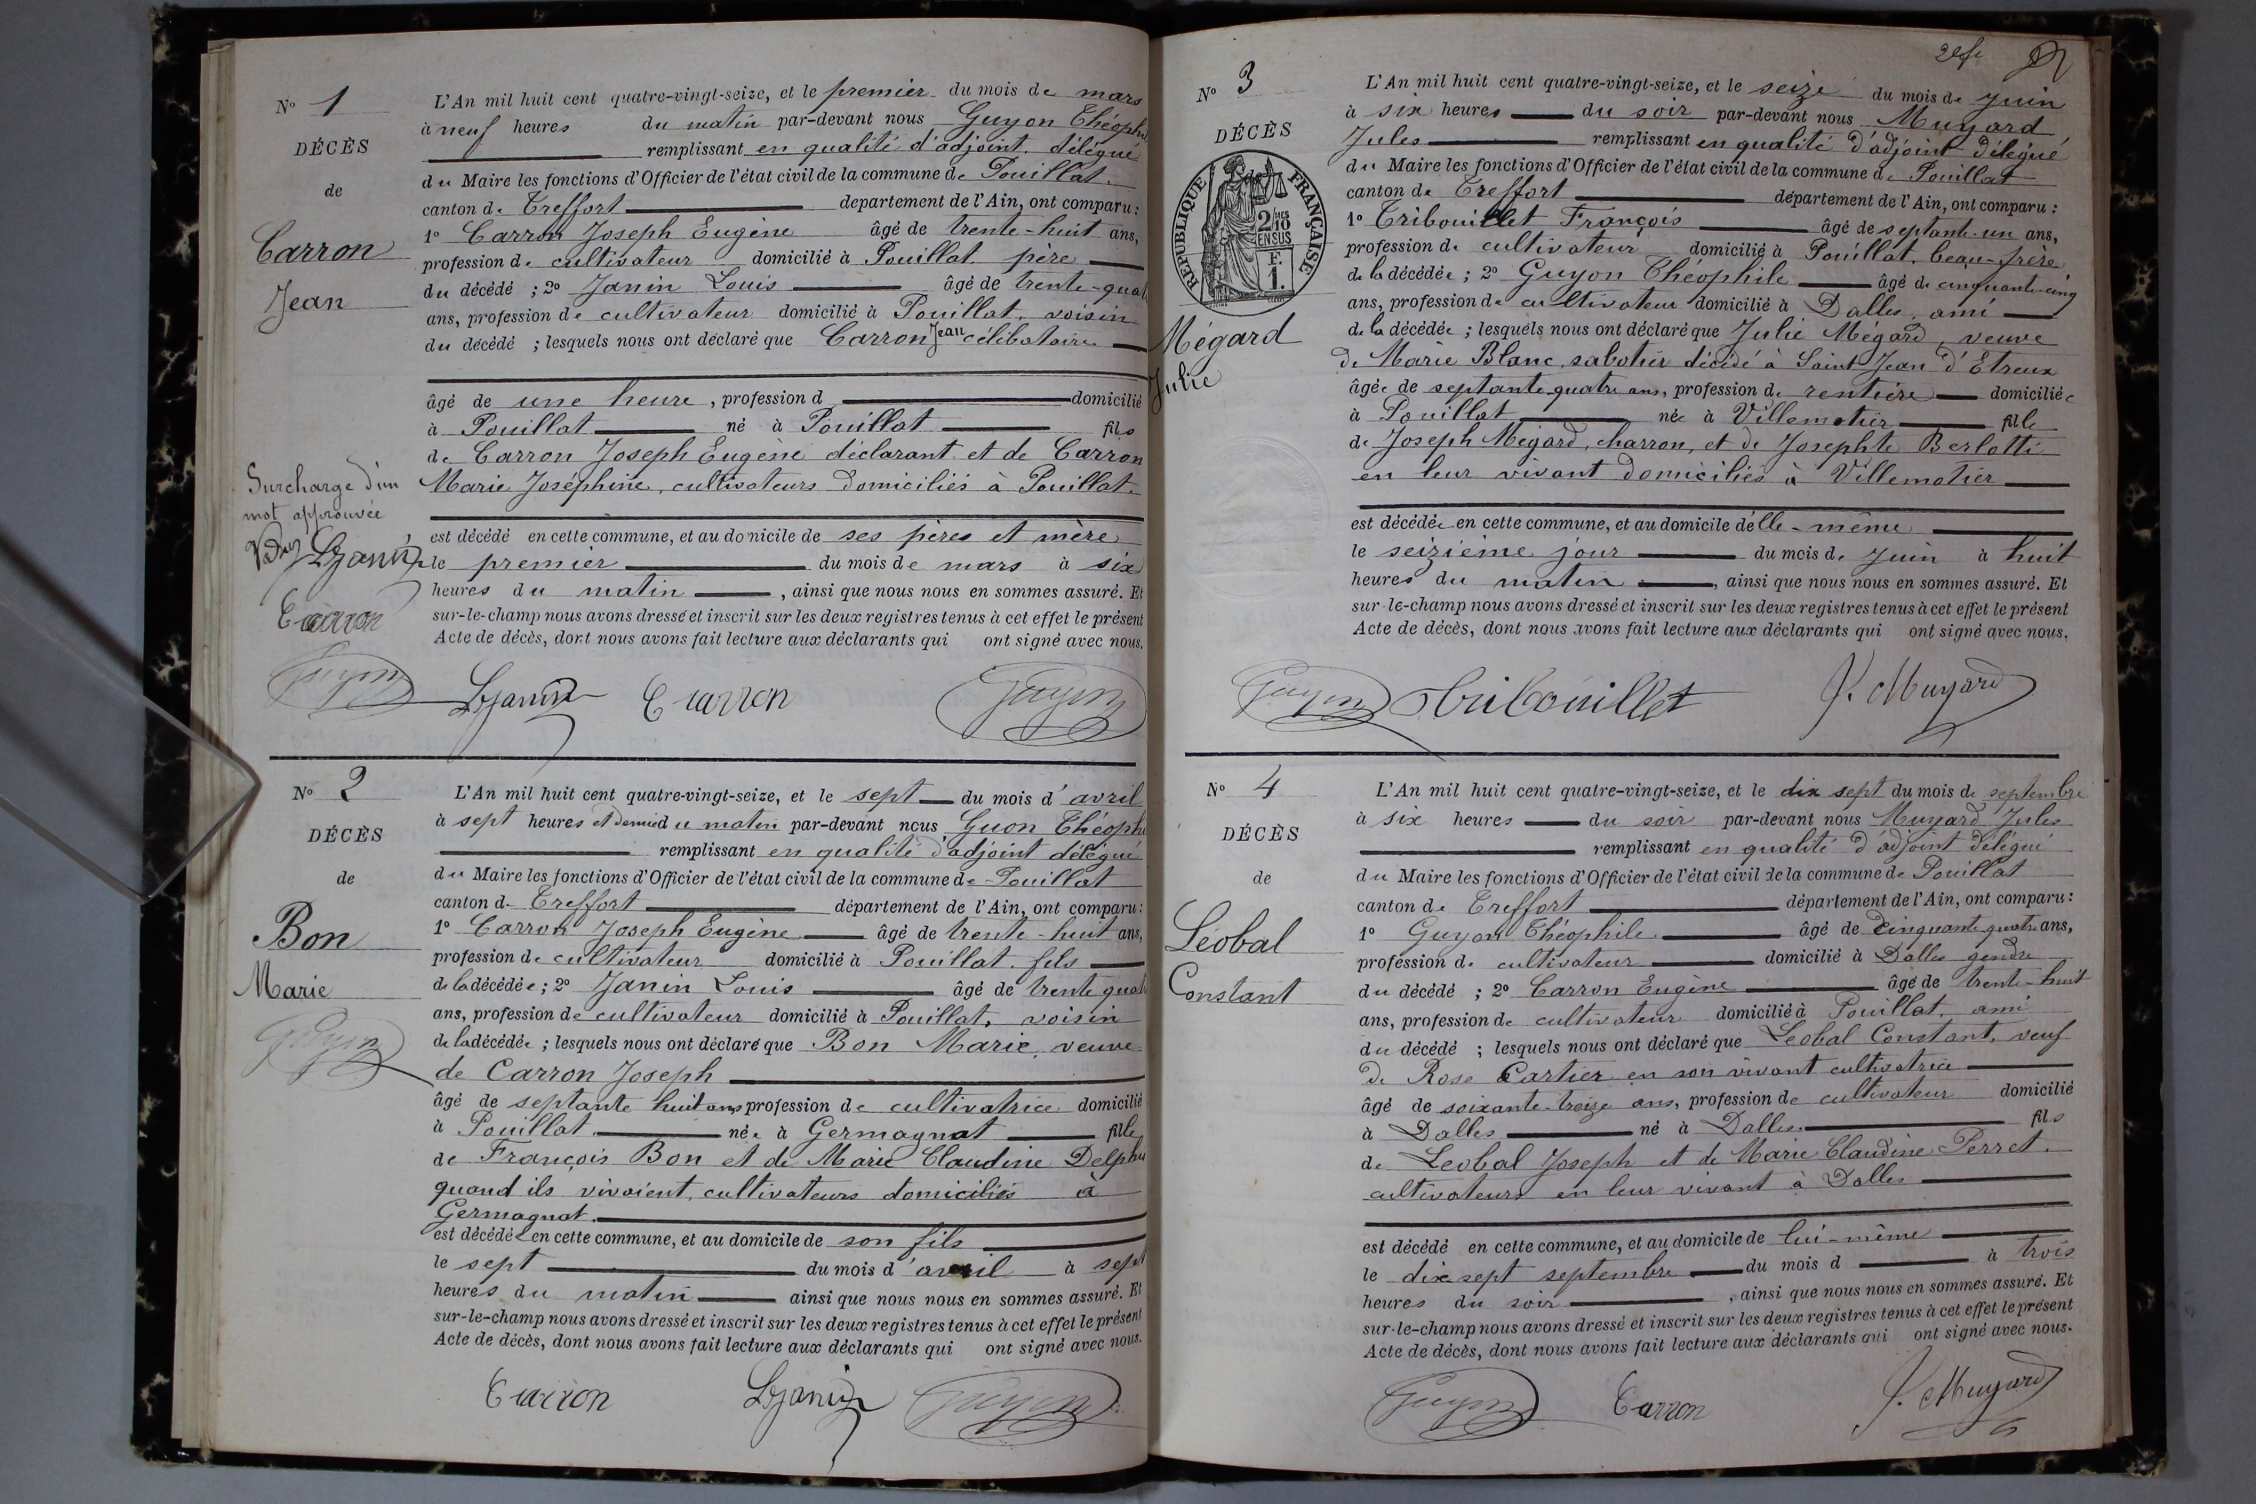 N° 1
DÉCÈS
de
Carron
Jean
L'An mil huit cent quatre-vingt-seize, et le premier du mois de mars
à neuf heures du matin par-devant nous Guyon Théoph
remplissant en qualité d'adjoint délégué
du Maire les fonctions d'Officier de l'état civil de la commune de Pouillat
canton de Treffort département de l'Ain, ont comparu :
1° Carron Joseph Eugène âgé de trente-huit ans,
profession de cultivateur domicilié à Pouillat père
du décédé ; 2° Janin Louis âgé de trente-quat
ans, profession de cultivateur domicilié à Pouillat, voisin
du décédé ; lesquels nous ont déclaré que Carron Jean célibataire
âgé de une heure, profession d domicilié
à Pouillat né à Pouillat fils
de Carron Joseph Eugène déclarant et de Carron
Marie Joséphine, cultivateurs domiciliés à Pouillat.
est décédé en cette commune, et au domicile de ses pères et mère
le premier du mois de mars à six
heures du matin, ainsi que nous nous en sommes assuré. Et
sur-le-champ nous avons dressé et inscrit sur les deux registres tenus à cet effet le présent
Acte de décès, dont nous avons fait lecture aux déclarants qui ont signé avec nous.
Surcharge d'un
mot approuvée
LJanin
E Carron
Guyon
LJanin E Carron Guyon
N° 2
DÉCÈS
de
Bon
Marie
Guyon
L'An mil huit cent quatre-vingt-seize, et le sept du mois d'avril
à sept heures et demie du matin par-devant nous Guon Théoph
remplissant en qualité d'adjoint délégué
du Maire les fonctions d'Officier de l'état civil de la commune de Pouillat
canton de Treffort département de l'Ain, ont comparu :
1° Carron Joseph Eugène âgé de trente-huit ans,
profession de cultivateur domicilié à Pouillat fils
de la décédée ; 2° Janin Louis âgé de trente quat
ans, profession de cultivateur domicilié à Pouillat, voisin
de la décédée ; lesquels nous ont déclaré que Bon Marie, veuve
de Carron Joseph
âgé de septante huit ans profession de cultivatrice domicilié
à Pouillat née à Germagnat fille
de François Bon et de Marie Claudine Delph
quand ils vivaient, cultivateurs domiciliés à
Germagnat.
est décédée en cette commune, et au domicile de son fils
le sept du mois d'avril à sept
heures du matin ainsi que nous nous en sommes assuré. Et
sur-le-champ nous avons dressé et inscrit sur les deux registres tenus à cet effet le présent
Acte de décès, dont nous avons fait lecture aux déclarants qui ont signé avec nous.
E Carron LJanin Guyon
N° 3
DÉCÈS
RÉPUBLIQUE FRANÇAISE
2/10 EN SUS
F. 1.
Mégard
Julie
L'An mil huit cent quatre-vingt-seize, et le seize du mois de Juin
à six heures du soir par-devant nous Muyard
Jules remplissant en qualité d'adjoint délégué
du Maire les fonctions d'Officier de l'état civil de la commune de Pouillat
canton de Treffort département de l'Ain, ont comparu :
1° Tribouillet François âgé de septante-un ans,
profession de cultivateur domicilié à Pouillat, beau-frère
de la décédée ; 2° Guyon Théophile âgé de cinquante-cinq
ans, profession de cultivateur domicilié à Dalles, ami
de la décédée ; lesquels nous ont déclaré que Julie Mégard, veuve
de Marie Blanc, sabotier décédé à Saint Jean d'Etreux
âgée de septante-quatre ans, profession de rentière domiciliée
à Pouillat née à Villemotier fille
de Joseph Mégard, charron, et de Josephte Berlotti
en leur vivant domiciliés à Villemotier
est décédée en cette commune, et au domicile d'elle-même
le seizième jour du mois de Juin à huit
heures du matin, ainsi que nous nous en sommes assuré. Et
sur-le-champ nous avons dressé et inscrit sur les deux registres tenus à cet effet le présent
Acte de décès, dont nous avons fait lecture aux déclarants qui ont signé avec nous.
Guyon Tribouillet J. Muyard
N° 4
DÉCÈS
de
Léobal
Constant
L'An mil huit cent quatre-vingt-seize, et le dix sept du mois de septembre
à six heures du soir par-devant nous Muyard Jules
remplissant en qualité d'adjoint délégué
du Maire les fonctions d'Officier de l'état civil de la commune de Pouillat
canton de Treffort département de l'Ain, ont comparu :
1° Guyon Théophile âgé de cinquante quatre ans,
profession de cultivateur domicilié à Dalles gendre
du décédé ; 2° Carron Eugène âgé de trente-huit
ans, profession de cultivateur domicilié à Pouillat, ami
du décédé ; lesquels nous ont déclaré que Léobal Constant, veuf
de Rose Cartier en son vivant cultivatrice
âgé de soixante-treize ans, profession de cultivateur domicilié
à Dalles né à Dalles fils
de Léobal Joseph et de Marie Claudine Perret.
cultivateurs en leur vivant à Dalles
est décédé en cette commune, et au domicile de lui-même
le dix sept septembre du mois d à trois
heures du soir, ainsi que nous nous en sommes assuré. Et
sur-le-champ nous avons dressé et inscrit sur les deux registres tenus à cet effet le présent
Acte de décès, dont nous avons fait lecture aux déclarants qui ont signé avec nous.
Guyon Carron J. Muyard